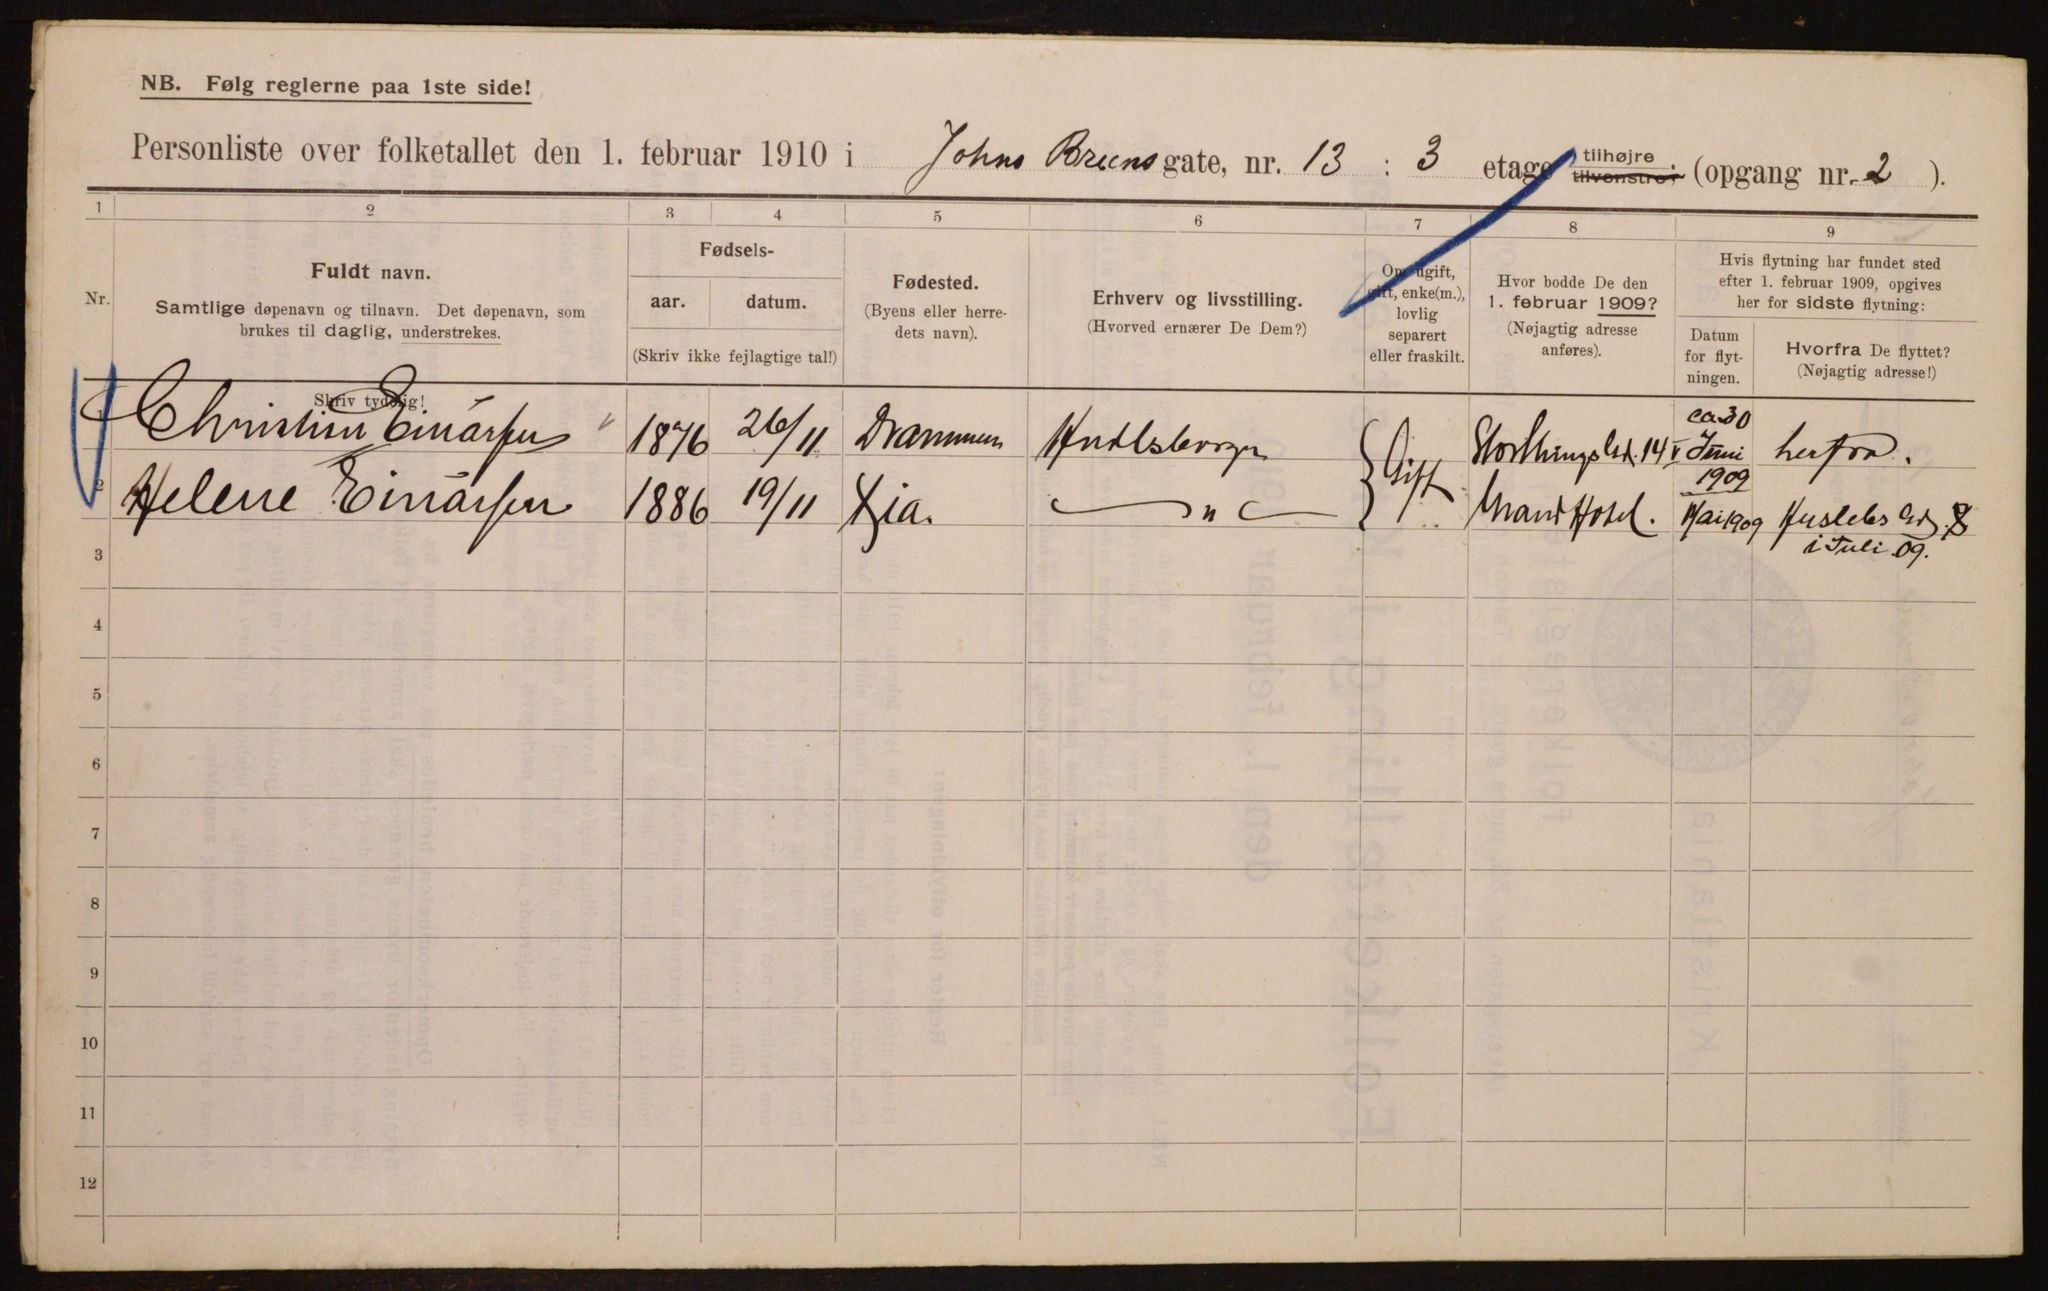 NB. Følg reglerne paa 1ste side!
Personliste over folketallet den 1. februar 1910 i Johns Bruns gate, nr. 13 : 3 etage tilhøjre tilvenstre, (opgang nr. 2 ).
1 2 3 4 5 6 7 8 9
Nr.
Fuldt navn.
Samtlige døpenavn og tilnavn. Det døpenavn, som
brukes til daglig, understrekes.
Skriv tydelig!
Fødsels-
aar. datum.
(Skriv ikke fejlagtige tal!)
Fødested.
(Byens eller herre-
dets navn).
Erhverv og livsstilling.
(Hvorved ernærer De Dem?)
Om ugift,
gift, enke(m.),
lovlig
separert
eller fraskilt.
Hvor bodde De den
1. februar 1909?
(Nøjagtig adresse
anføres).
Hvis flytning har fundet sted
efter 1. februar 1909, opgives
her for sidste flytning:
Datum
for flyt-
ningen.
Hvorfra De flyttet?
(Nøjagtig adresse!)
1 Christian Einarsen 1876 26/11 Drammen Gift Storthingsgd. 14 V ca 30 Juni 1909 herfra.
2 Helene Einarsen 1886 19/11 Kia. — " — Grand Hotel. Mai 1909 8
i Juli 09.
3
4
5
6
7
8
9
10
11
12